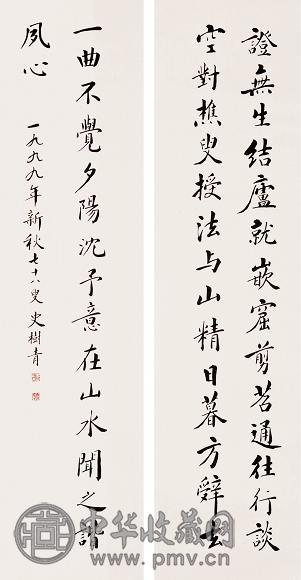 證無生結廬就嵌窟剪苕通往行談
空對樵叟授法与山精日暮方辭去
一曲不覺夕陽沈予意在山水聞之諧
夙心 一九九九年新秋七十八叟 史樹青
中华收藏网
www.pmv.cn